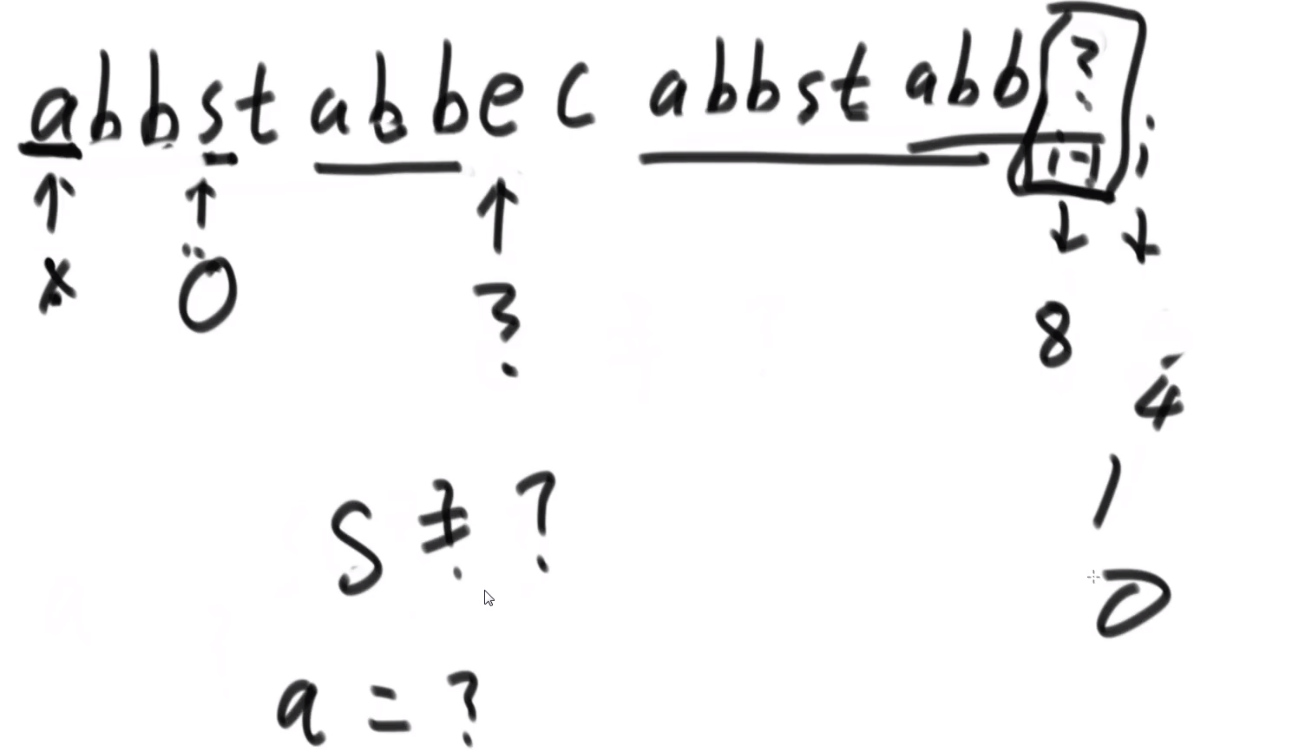 abbst abbec abbst abb ?
i-1 i
x ö ? 8
4
s ≠ ? 1
0
a = ?